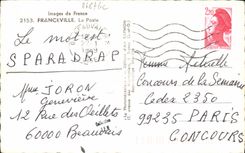 Images de France
2153. FRANCEVILLE. La Poste
Le mot est :
SPARADRAP
Mme JORON
Geneviève
12 Rue des Oeillets
60000 Beauvais
Femme Actuelle
Concours de la Semaine
Cedex 2350
99235 PARIS
CONCOURS
2,20